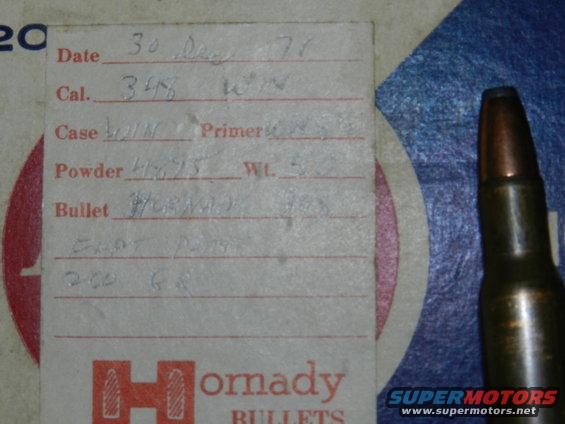 20
Date 30 Dec 78
Cal. 348 WIN
Case WIN Primer WIN
Powder Wt. 50
Bullet Hornady
FLAT POINT
200 GR
Hornady
BULLETS
SUPERMOTORS
www.supermotors.net